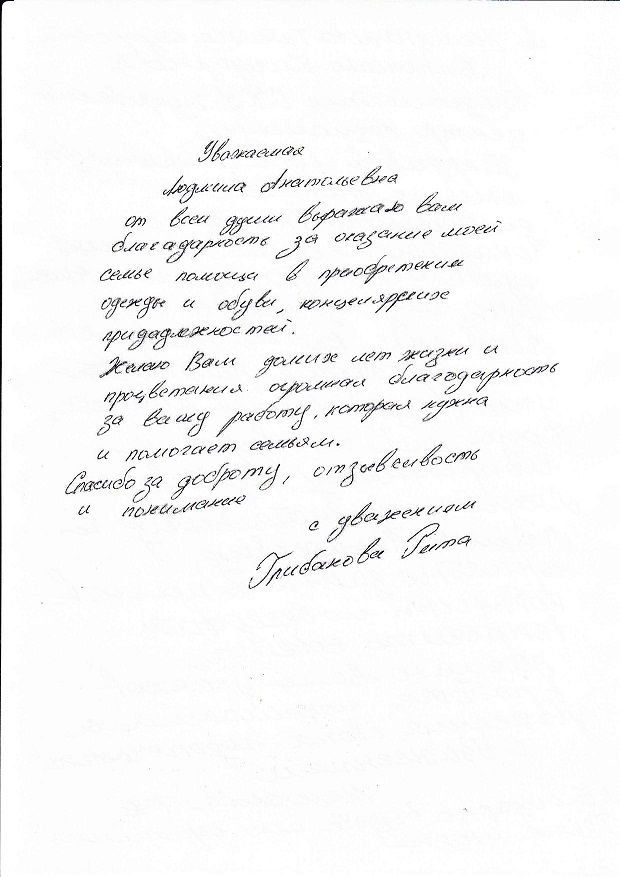 Уважаемая
Людмила Анатольевна
от всей души выражаю вам
благадарность за оказание моей
семье помощи в преобретении
одежды и обуви, концелярских
придадлежностей.
Желаю Вам долгих лет жизни и
процветания огромная благодарность
за вашу работу, которая нужна
и помогает семьям.
Спасибо за доброту, отзывчивость
и понимание
с уважением
Грибанова Рита